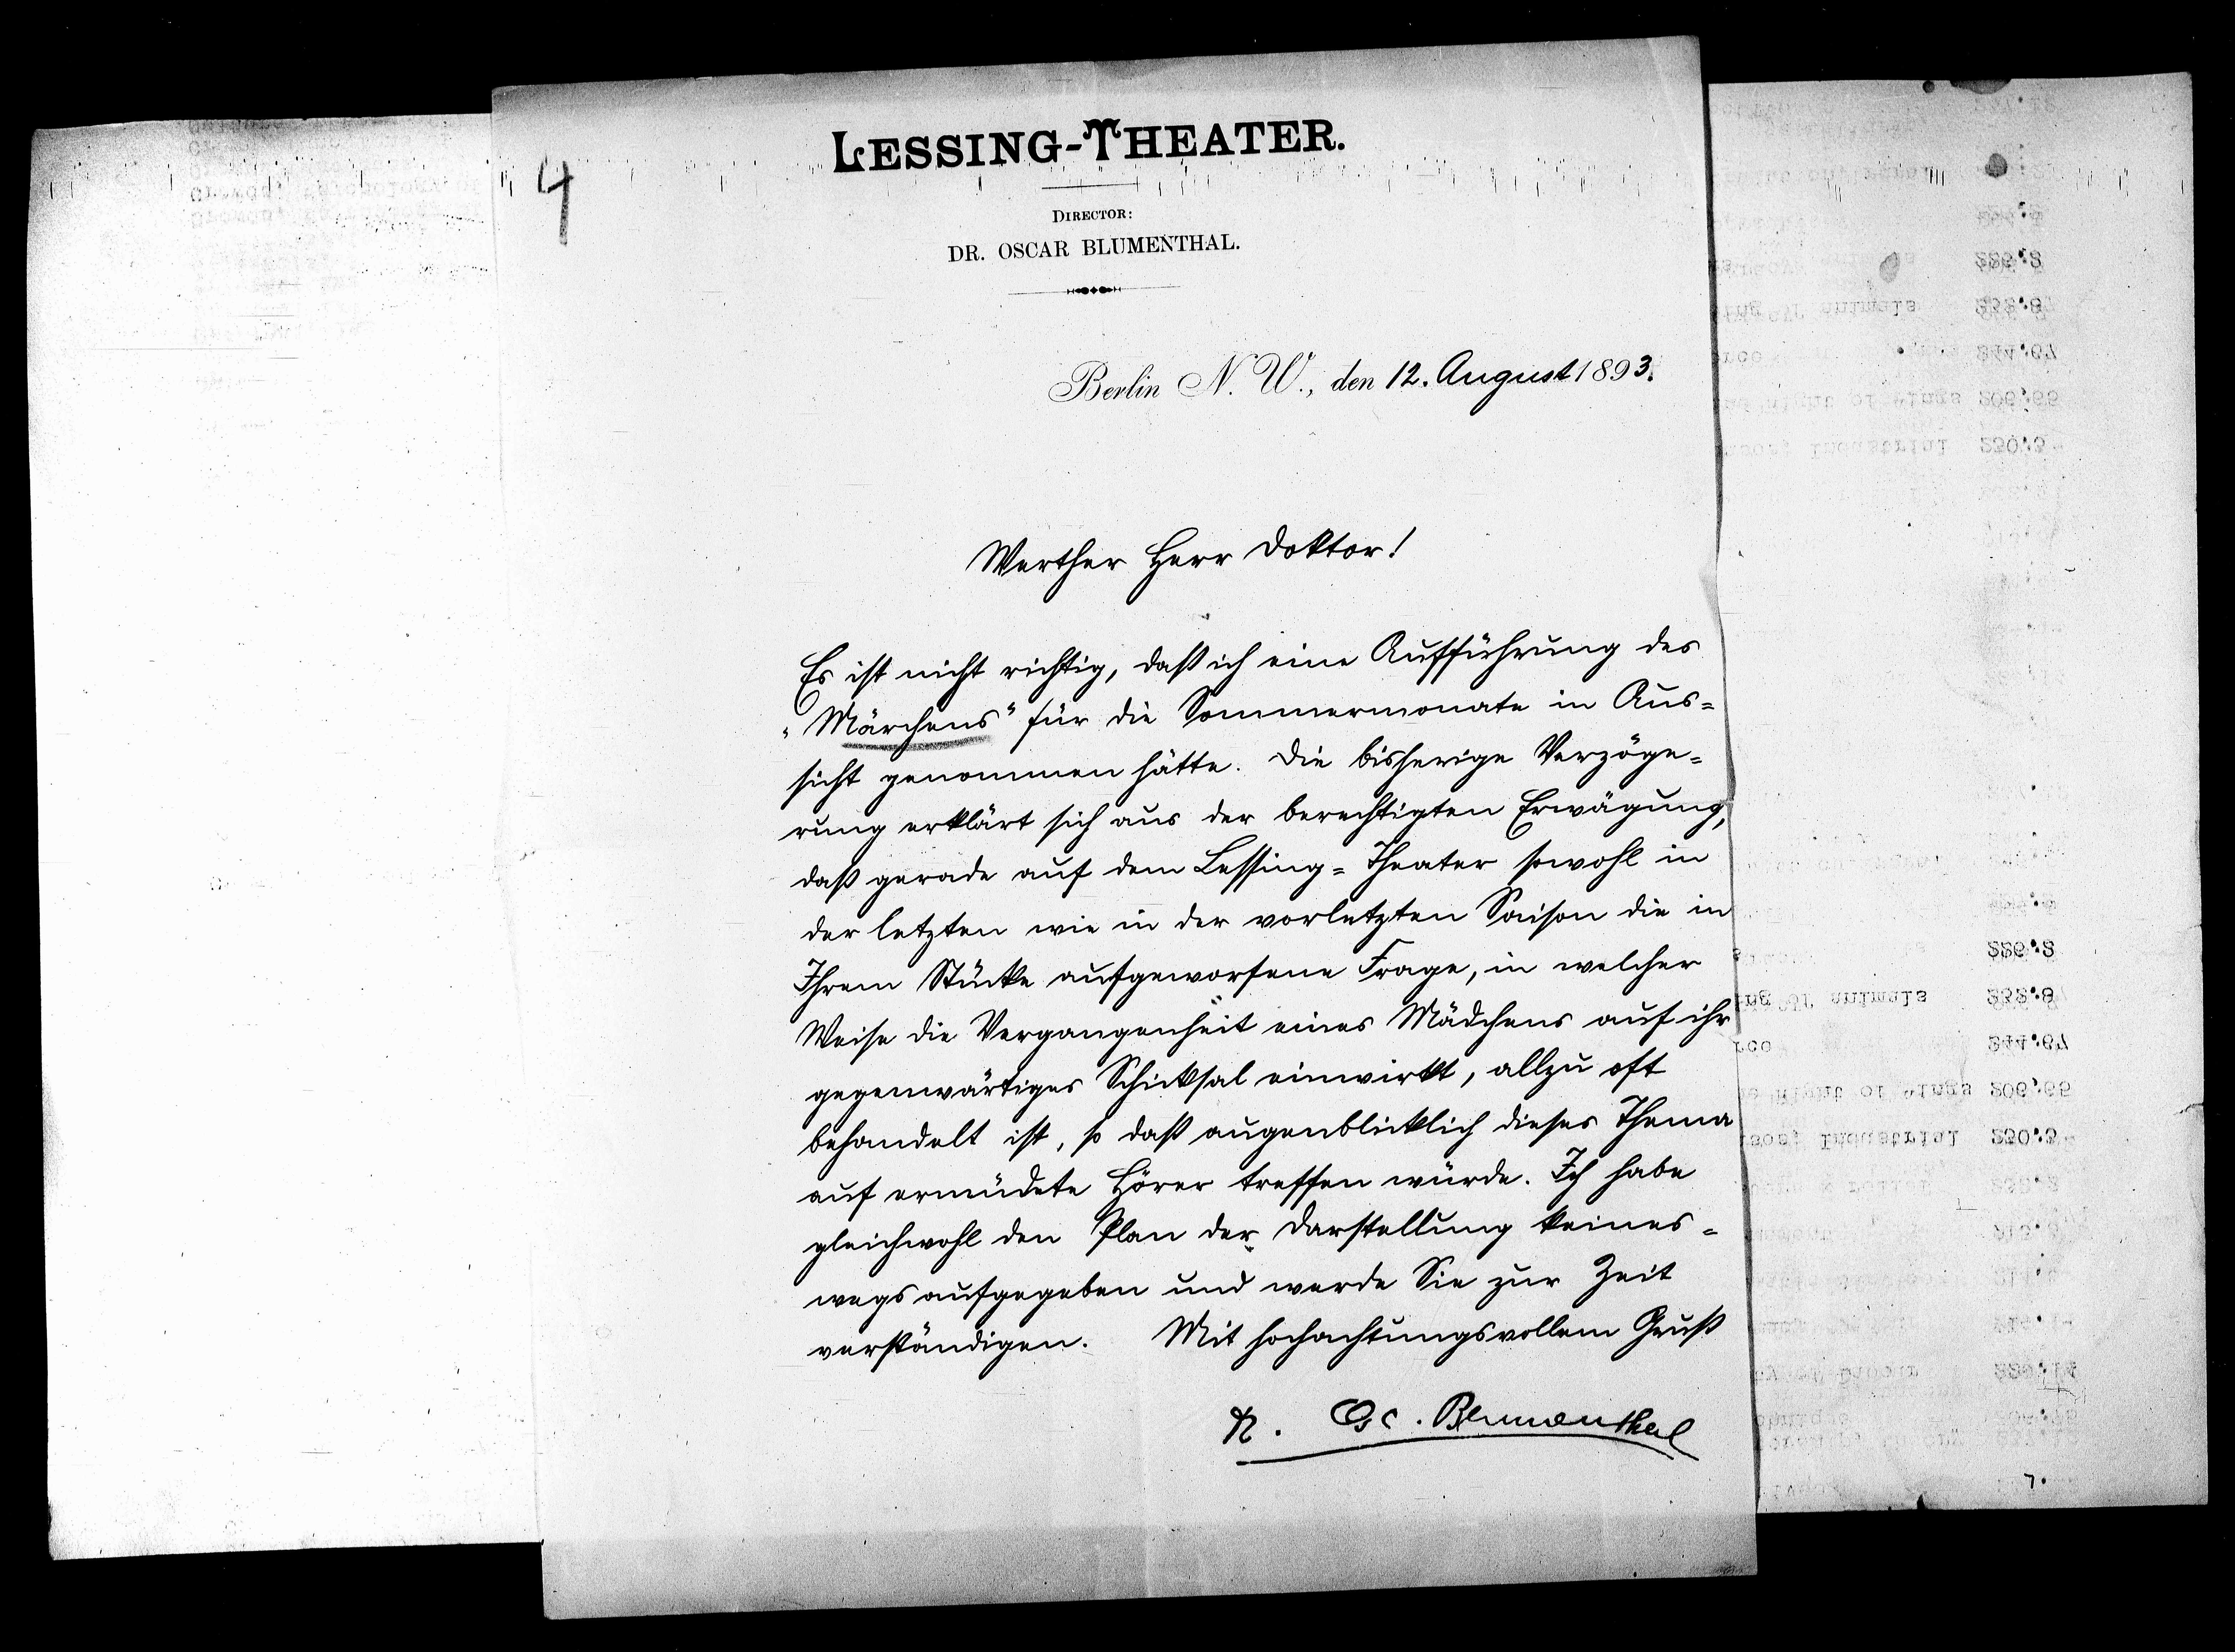 4
LESSING-THEATER.
DIRECTOR:
DR. OSCAR BLUMENTHAL.
Berlin N. W., den 12. August 1893.
Werther Herr Doktor!
Es ist nicht richtig, daß ich eine Aufführung des
„Märchens" für die Sommermonate in Aus=
sicht genommen hätte. Die bisherige Verzöge=
rung erklärt sich aus der berechtigten Erwägung,
daß gerade auf dem Lessing=Theater sowohl in
der letzten wie in der vorletzten Saison die in
Ihrem Stücke aufgeworfene Frage, in welcher
Weise die Vergangenheit eines Mädchens auf ihr
gegenwärtiges Schicksal einwirkt, allzu oft
behandelt ist, so daß augenblicklich dieses Thema
auf ermüdete Hörer treffen würde. Ich habe
gleichwohl den Plan der Darstellung keines=
wegs aufgegeben und werde Sie zur Zeit
verständigen. Mit hochachtungsvollem Gruß
Osc. Blumenthal